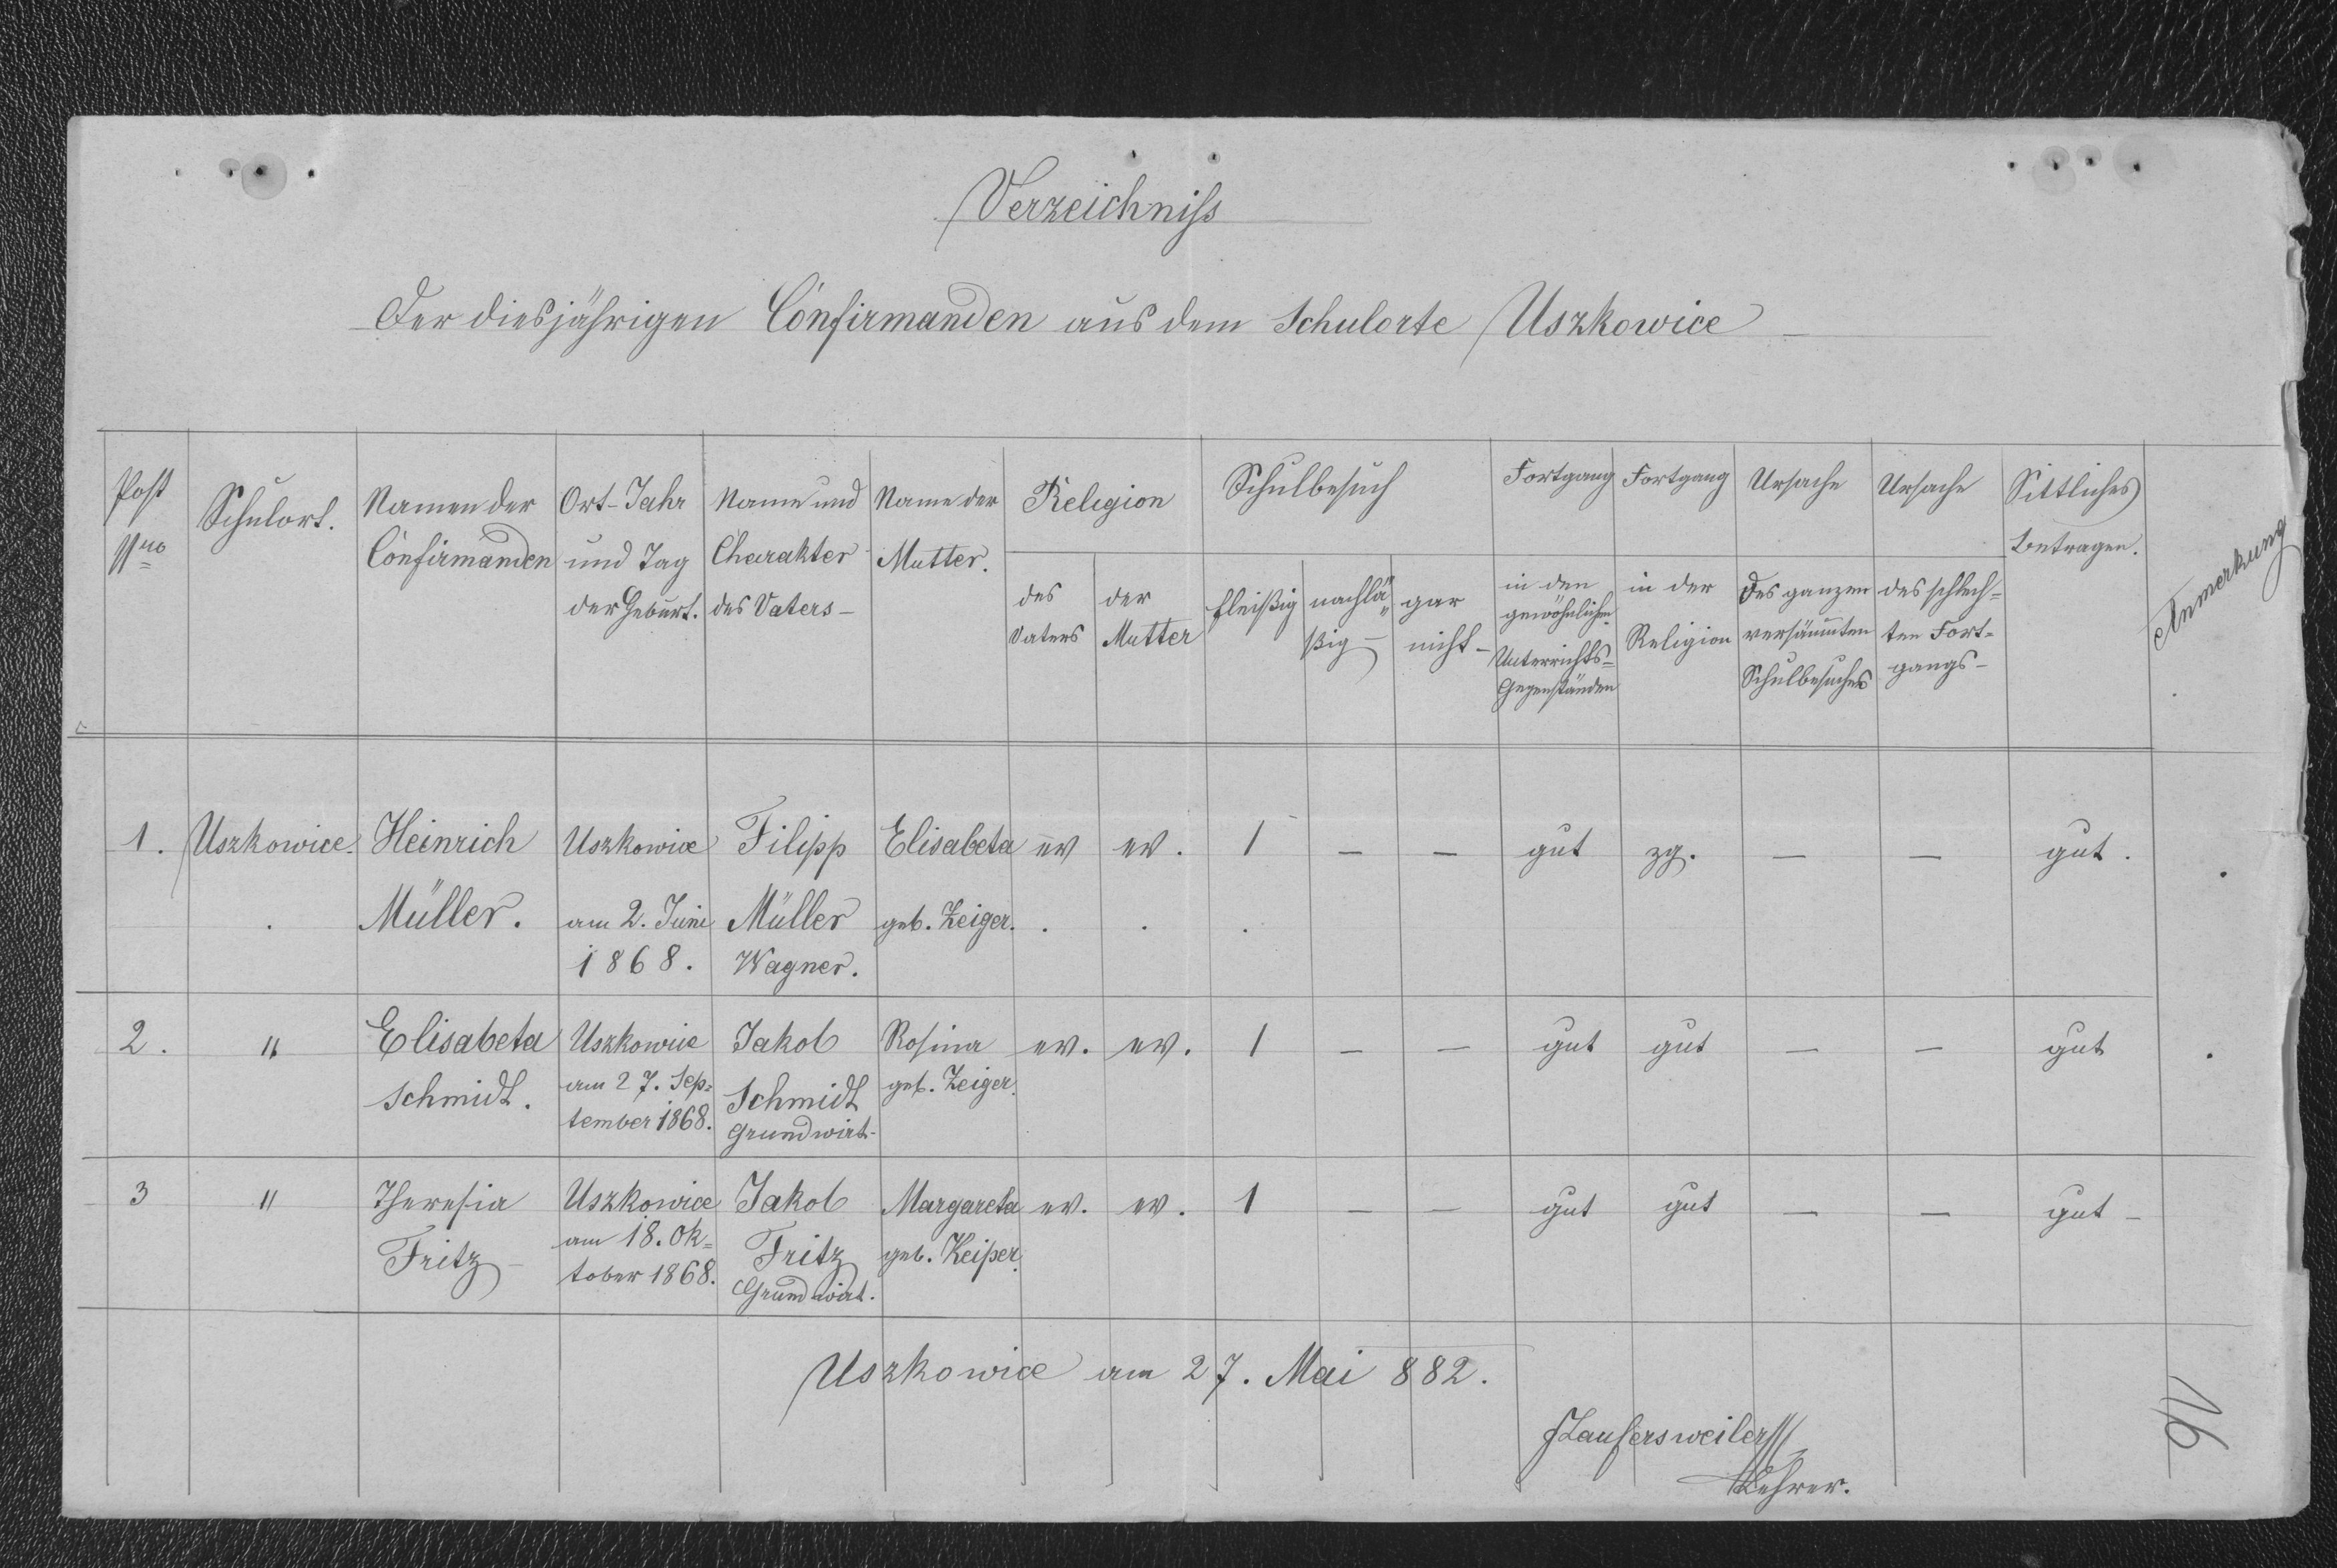 Verzeichniss
Der diesjährigen Confirmanden aus dem Schulorte Uszkowice
Post
Nro
Schulort.
Namen der
Confirmanden
Ort-Jahr
und Tag
der Geburt.
Name und
Charakter
des Vaters-
Name der
Mutter.
Religion
des
Vaters
der
Mutter
Schulbesuch
fleißig
nachlä„
ßig-
gar
nicht-
Fortgang
in den
gewöhnlichen
Unterrichts=
Gegenständen
Fortgang
in der
Religion
Ursache
des ganzen
versäumten
Schulbesuches
Ursache
des schlech=
ten Fort=
gangs-
Sittliches
Betragen.
Anmerkung
1. Uszkowice. Heinrich Uszkowice Filipp Elisabeta ev ev. 1 - - gut zg. - - gut.
Müller. am 2. Juni Müller geb. Zeiger.
1868. Wagner.
2. " Elisabeta Uszkowice Jakob Rosina ev. ev. 1 - - gut gut - - gut
Schmidt. am 27. Sep= Schmidt geb. Zeiger.
tember 1868. Grundwirt-
3 " Theresia Uszkowice Jakob Margareta ev. ev. 1 - - gut gut - - gut -
Fritz- am 18. Ok= Fritz geb. Keiper.
tober 1868. Grundwirt.
Uszkowice am 27. Mai 882.
Laufersweiler
Lehrer.
16